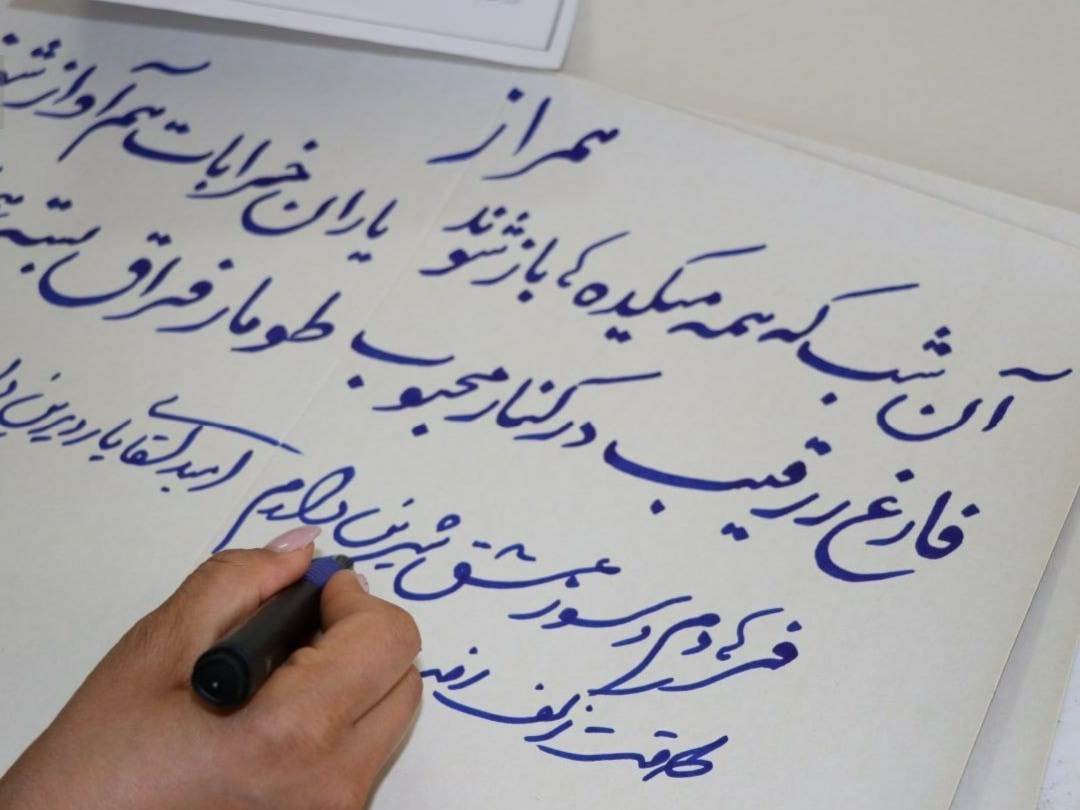 همراز
آن شب که همه میکده ها باز شوند یاران خرابات هم آواز
فارغ ز رقیب در کنار محبوب طومار فراق بسته
فرهادم و سوز عشق شیرین دارم امید لقا یار دیرین
طاقت ز کف